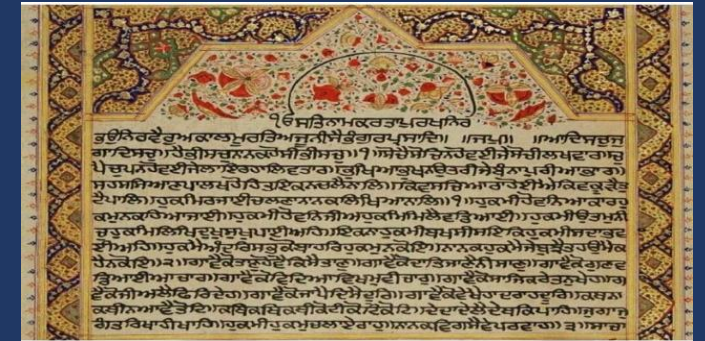 ੴਸਤਿਨਾਮਕਰਤਾਪੁਰਖੁਨਿਰ
ਭਉਨਿਰਵੈਰੁਅਕਾਲਮੂਰਤਿਅਜੂਨੀਸੈਭੰਗੁਰਪ੍ਰਸਾਦਿ॥ ॥ਜਪੁ॥ ॥ਆਦਿਸਚੁਜੁ
ਗਾਦਿਸਚੁ॥ਹੈਭੀਸਚੁਨਾਨਕਹੋਸੀਭੀਸਚੁ॥੧॥ਸੋਚੈਸੋਚਿਨਹੋਵਈਜੇਸੋਚੀਲਖਵਾਰ॥ਚੁ
ਪੈਚੁਪਨਹੋਵਈਜੇਲਾਇਰਹਾਲਿਵਤਾਰ॥ਭੁਖਿਆਭੁਖਨਉਤਰੀਜੇਬੰਨਾਪੁਰੀਆਭਾਰ॥
ਸਹਸਸਿਆਣਪਾਲਖਹੋਹਿਤਇਕਨਚਲੈਨਾਲਿ॥ਕਿਵਸਚਿਆਰਾਹੋਈਐਕਿਵਕੂੜੈਤੁ
ਟੈਪਾਲਿ॥ਹੁਕਮਿਰਜਾਈਚਲਣਾਨਾਨਕਲਿਖਿਆਨਾਲਿ॥੧॥ਹੁਕਮੀਹੋਵਨਿਆਕਾਰਹੁ
ਕਮੁਨਕਹਿਆਜਾਈ॥ਹੁਕਮੀਹੋਵਨਿਜੀਅਹੁਕਮਿਮਿਲੈਵਡਿਆਈ॥ਹੁਕਮੀਉਤਮੁਨੀ
ਚੁਹੁਕਮਿਲਿਖਿਦੁਖਸੁਖਪਾਈਅਹਿ॥ਇਕਨਾਹੁਕਮੀਬਖਸੀਸਇਕਿਹੁਕਮੀਸਦਾਭਵ
ਾਈਅਹਿ॥ਹੁਕਮੈਅੰਦਰਿਸਭੁਕੋਬਾਹਰਿਹੁਕਮੁਨਕੋਇ॥ਨਾਨਕਹੁਕਮੈਜੇਬੁਝੈਤਹਉਮੈਕ
ਹੈਨਕੋਇ॥੨॥ਗਾਵੈਕੋਤਾਣੁਹੋਵੈਕਿਸੈਤਾਣੁ॥ਗਾਵੈਕੋਦਾਤਿਜਾਣੈਨੀਸਾਣੁ॥ਗਾਵੈਕੋਗੁਣਵ
ਡਿਆਈਆਚਾਰ॥ਗਾਵੈਕੋਵਿਦਿਆਵਿਖਮੁਵੀਚਾਰੁ॥ਗਾਵੈਕੋਸਾਜਿਕਰੇਤਨੁਖੇਹ॥ਗਾ
ਵੈਕੋਜੀਅਲੈਫਿਰਿਦੇਹ॥ਗਾਵੈਕੋਜਾਪੈਦਿਸੈਦੂਰਿ॥ਗਾਵੈਕੋਵੇਖੈਹਾਦਰਾਹਦੂਰਿ॥ਕਥਨਾ
ਕਥੀਨਆਵੈਤੋਟਿ॥ਕਥਿਕਥਿਕਥੀਕੋਟੀਕੋਟਿਕੋਟਿ॥ਦੇਦਾਦੇਲੈਦੇਥਕਿਪਾਹਿ॥ਜੁਗਾਜੁ
ਗੰਤਰਿਖਾਹੀਖਾਹਿ॥ਹੁਕਮੀਹੁਕਮੁਚਲਾਏਰਾਹੁ॥ਨਾਨਕਵਿਗਸੈਵੇਪਰਵਾਹੁ॥੩॥ਸਾਚਾ